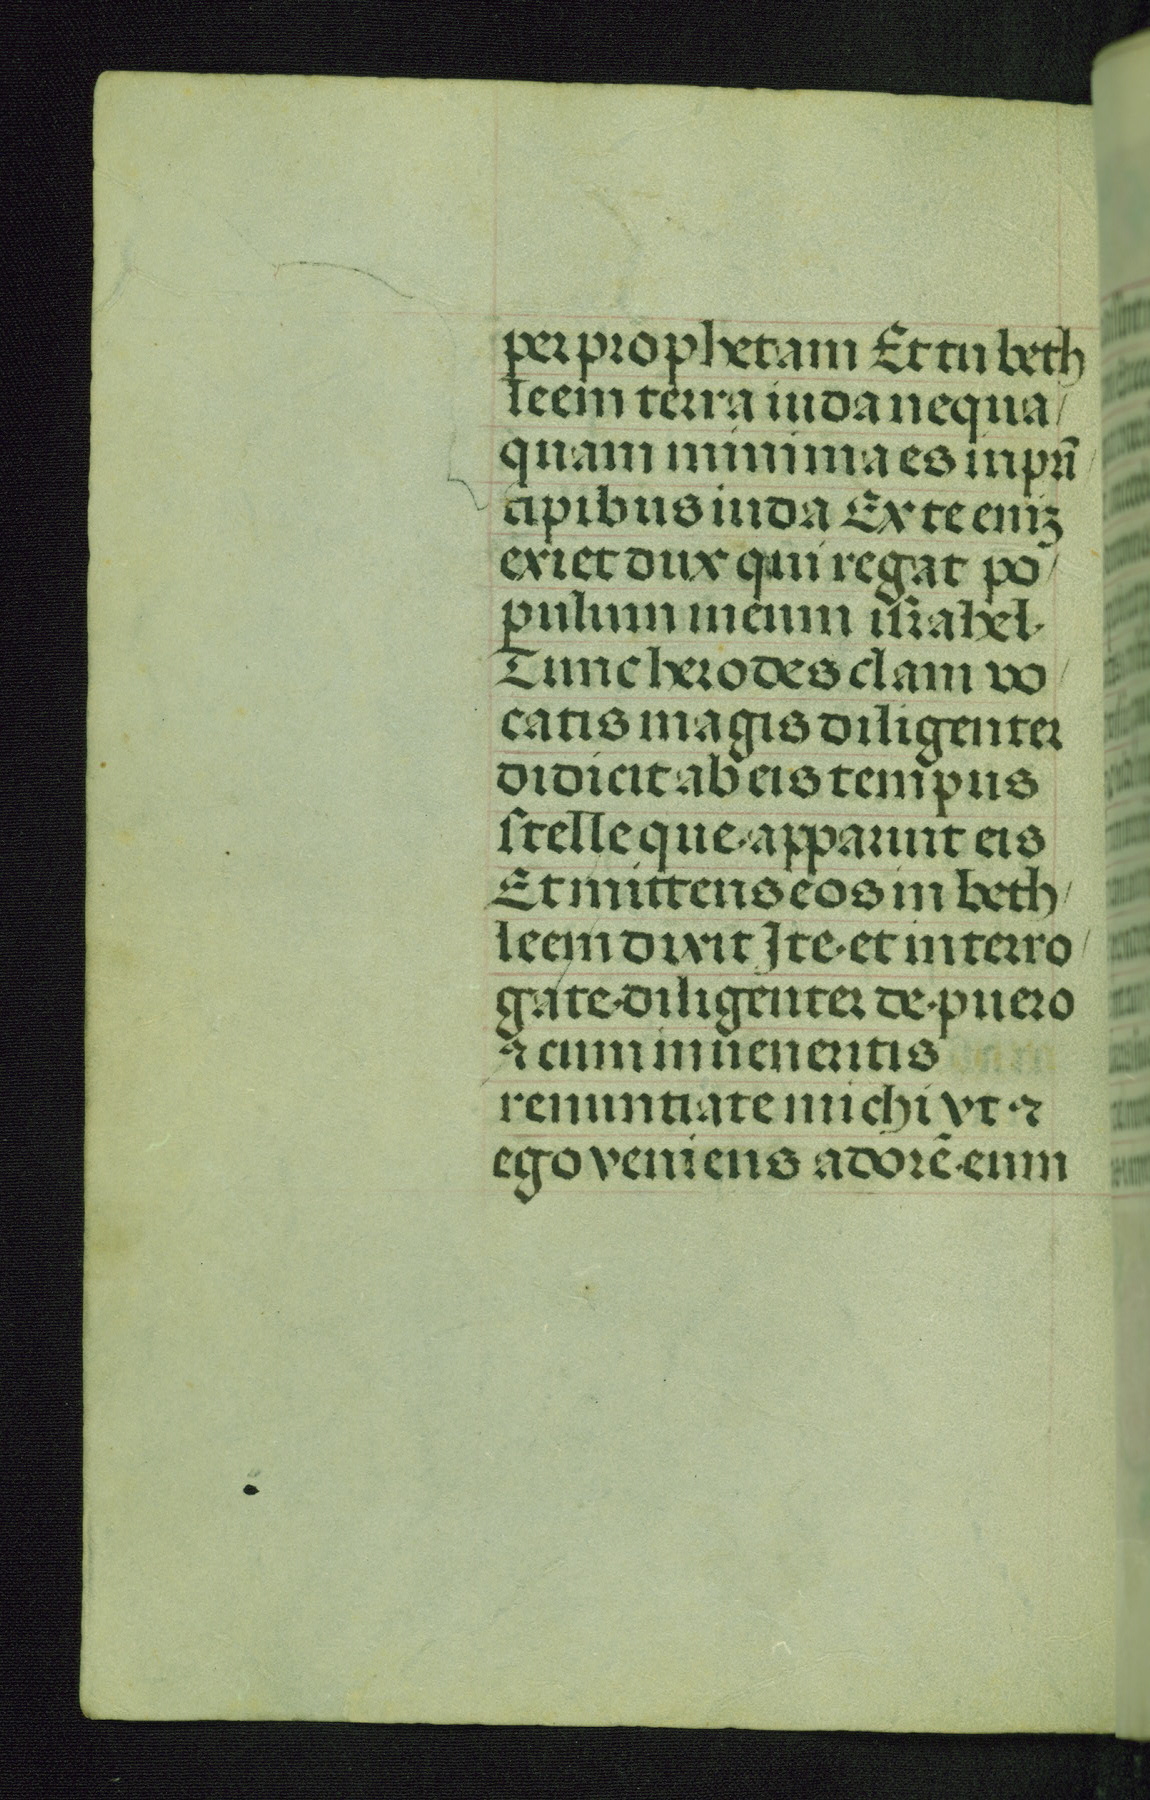 per prophetam Et tu beth
leem terra iuda nequa/
quam minima es in prī
cipibus iuda Ex te eniʒ
exiet dux qui regat po/
pulum meum iſrahel.
Tunc herodes clam vo/
catis magis diligenter
didicit ab eis tempus
ſtelle que apparuit eis
Et mittens eos in beth/
leem dixit Ite et interro/
gate diligenter de puero
⁊ cum inueneritis
renuntiate michi vt ⁊
ego veniens adorē eum